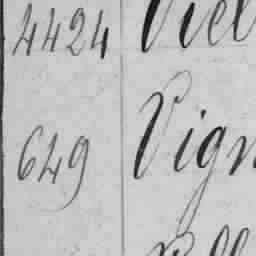 4424 Viel
649 Vign